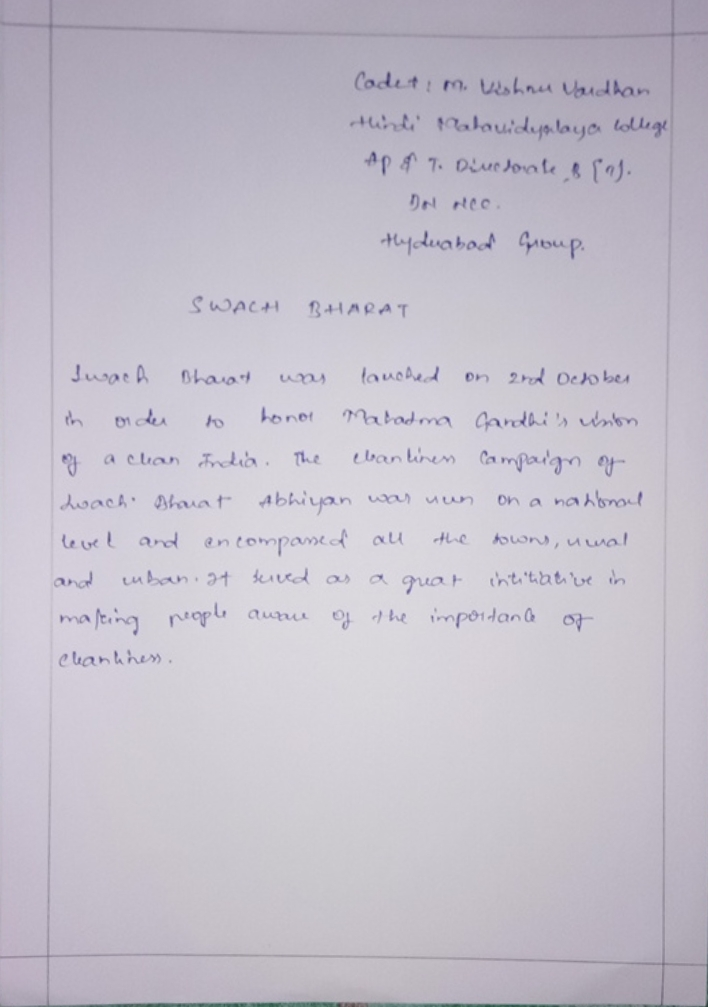 Cadet: M. Vishnu Vardhan
Hindi Mahavidyalaya College
AP & T. Directorate, 8 [T].
BN NCC.
Hyderabad Group.
SWACH BHARAT
Swach Bharat was lauched on 2nd October
in order to honor Mahatma Gandhi's vision
of a clean India. The cleanliness Campaign of
Swach. Bharat Abhiyan was run on a national
level and encompassed all the towns, rural
and urban. It served as a great intitiative in
making people aware of the importance of
cleanliness.